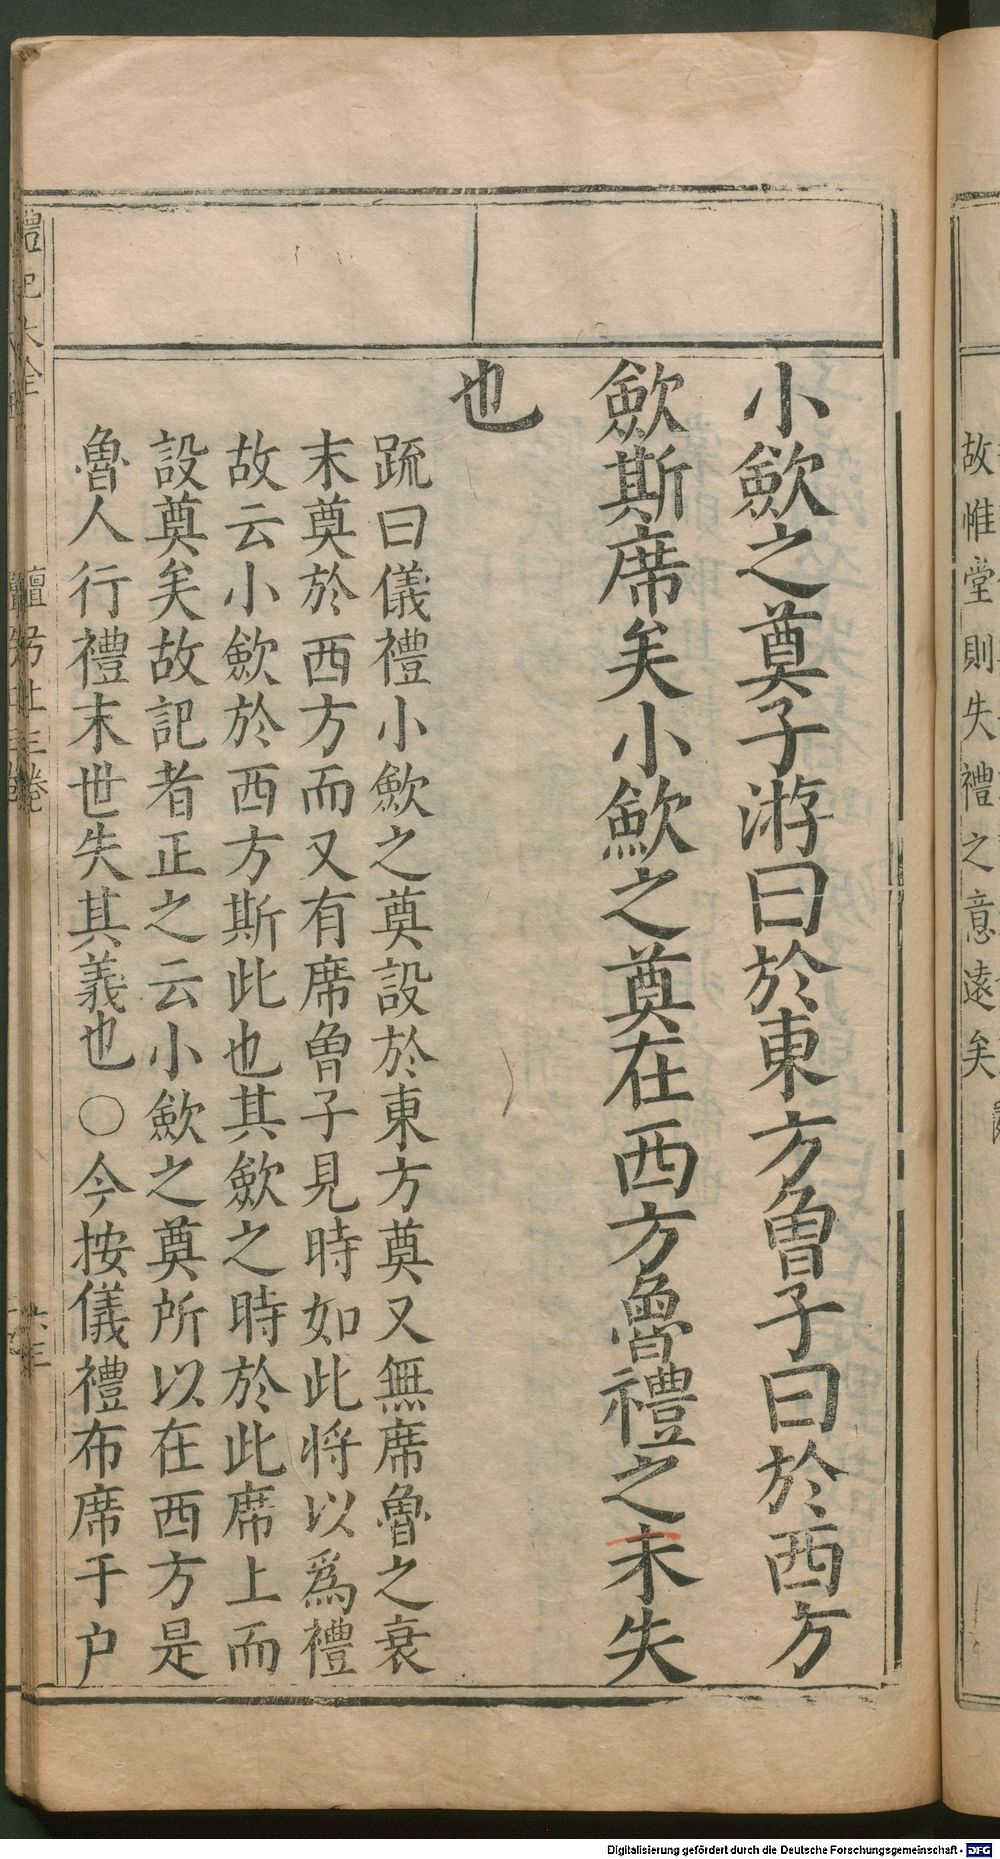 故惟堂則失禮之意遠矣
小歛之奠子游曰於東方曾子曰於西方
歛斯席矣小歛之奠在西方魯禮之末失
也
䟽曰儀禮小歛之奠設於東方奠又無席魯之衰
末奠於西方而又有席曾子見時如此将以爲禮
故云小歛於西方斯此也其歛之時於此席上而
設奠矣故記者正之云小歛之奠所以在西方是
魯人行禮末世失其義也○今按儀禮布席于户
禮記大全
檀弓上三卷
Digitalisierung gefördert durch die Deutsche Forschungsgemeinschaft - DFG